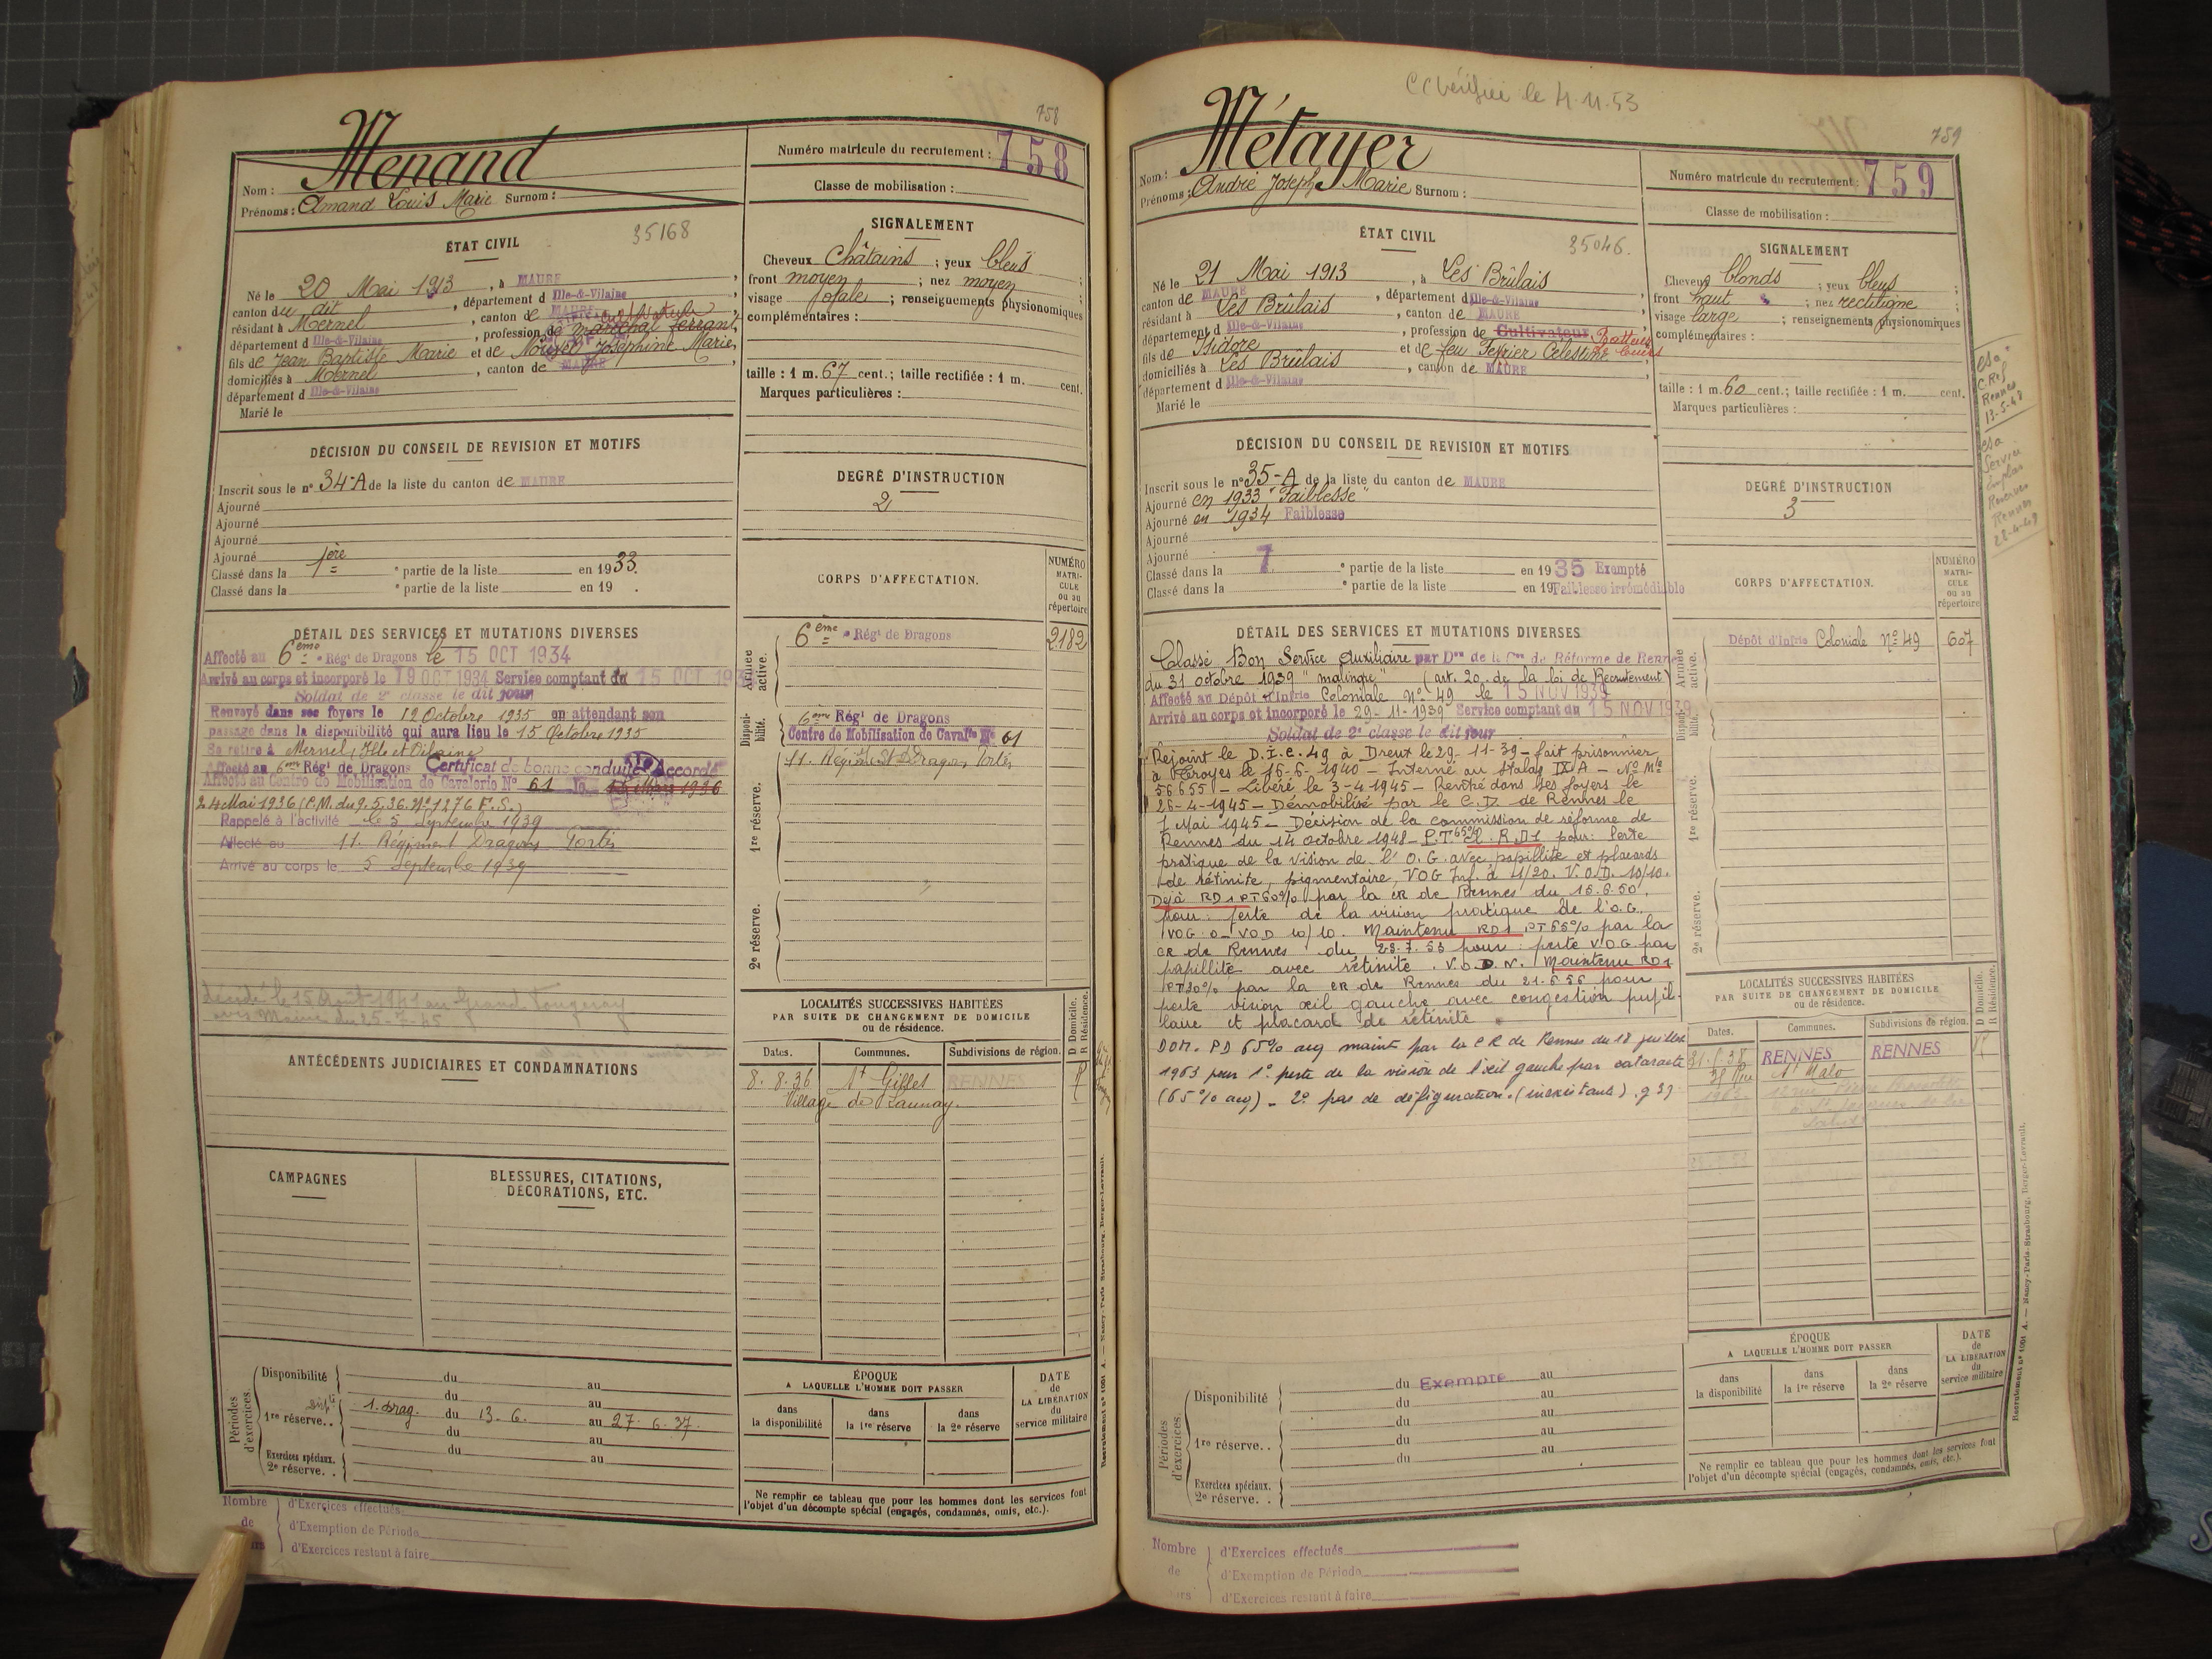 758
Menand
Nom :
Prénoms : Amand Louis Marie Surnom :
Numéro matricule du recrutement : 758
Classe de mobilisation :
ÉTAT CIVIL
35168
Né le 20 Mai 1913, à MAURE
canton du dit, département d Ille-&-Vilaine
résidant à Mernel, canton de MAURE
département d Ille-&-Vilaine, profession de maréchal ferrant
fils de Jean Baptiste Marie et de Nouvel Joséphine Marie
domiciliés à Mernel, canton de MAURE
département d Ille-&-Vilaine
Marié le
SIGNALEMENT
Cheveux Châtains ; yeux bleus
front moyen ; nez moyen ;
visage ; renseignements physionomiques
complémentaires :
taille : 1 m. 67 cent.; taille rectifiée : 1 m. cent.
Marques particulières :
DÉCISION DU CONSEIL DE REVISION ET MOTIFS
Inscrit sous le n° 34-A de la liste du canton de MAURE
Ajourné
Ajourné
Ajourné
Ajourné
Classé dans la 1ère partie de la liste en 1933.
Classé dans la e partie de la liste en 19 .
DEGRÉ D'INSTRUCTION
2
CORPS D'AFFECTATION.
NUMÉRO MATRI-CULE ou au répertoire
DÉTAIL DES SERVICES ET MUTATIONS DIVERSES
Affecté au 6eme Régt de Dragons le 15 OCT 1934
Arrivé au corps et incorporé le 19 OCT 1934 Service comptant du 15 OCT 193
Soldat de 2e classe le dit jour
Renvoyé dans ses foyers le 12 Octobre 1935 en attendant son
passage dans la disponibilité qui aura lieu le 15 Octobre 1935
Se retire à Mernel, Ille et Vilaine
Affecté au 6eme Régt de Dragons Certificat de bonne conduite Accordé
Affecté au Centre de Mobilisation de Cavalerie N° 61 le
24 Mai 1936 (P.M. du 9.5.36. N° 1276 F.S.)
Rappelé à l'activité le 5 Septembre 1939
Affecté au 11. Régiment Dragons Portés
Arrivé au corps le 5 Septembre 1939
décédé le 15 Août 1941 au Grand Fougeray
avis Mairie du 25-7-45
Armée active.
6eme Régt de Dragons 2182
Disponibilité.
6eme Régt de Dragons
Centre de Mobilisation de Cavalie N° 61
1re réserve.
11. Régiment Dragons Portés
2e réserve.
ANTÉCÉDENTS JUDICIAIRES ET CONDAMNATIONS
LOCALITÉS SUCCESSIVES HABITÉES
PAR SUITE DE CHANGEMENT DE DOMICILE
ou de résidence.
D Domicile. R Résidence.
Dates. Communes. Subdivisions de région.
8. 8. 36 St Gilles RENNES R
Village de Launay.
CAMPAGNES
BLESSURES, CITATIONS,
DÉCORATIONS, ETC.
Périodes d'exercices.
Disponibilité du au
du au
1re réserve.. 1. drag. du 13. 6. au 27. 6. 37.
du au
Exercices spéciaux. du au
2e réserve. .
ÉPOQUE
A LAQUELLE L'HOMME DOIT PASSER
dans la disponibilité
dans la 1re réserve
dans la 2e réserve
DATE de LA LIBÉRATION du service militaire
Ne remplir ce tableau que pour les hommes dont les services font
l'objet d'un décompte spécial (engagés, condamnés, omis, etc.).
Nombre d'Exercices effectués
de d'Exemption de Période
d'Exercices restant à faire
Recrutement n° 1001 A. — Nancy-Paris-Strasbourg, Berger-Levrault.
CC Vérifiée le 4.11.53
759
Métayer
Nom :
Prénoms : André Joseph Marie Surnom :
Numéro matricule du recrutement : 759
Classe de mobilisation :
ÉTAT CIVIL
35046.
Né le 21 Mai 1913, à Les Brûlais
canton de MAURE, département d Ille-&-Vilaine
résidant à Les Brûlais, canton de MAURE
département d Ille-&-Vilaine, profession de Cultivateur Batteur de Cuirs
fils de Isidore et de feu Fevrier Célestine
domiciliés à Les Brûlais, canton de MAURE
département d Ille-&-Vilaine
Marié le
SIGNALEMENT
Cheveux blonds ; yeux bleus
front haut ; nez rectiligne
visage large ; renseignements physionomiques
complémentaires :
taille : 1 m. 60 cent.; taille rectifiée : 1 m. cent.
Marques particulières :
DÉCISION DU CONSEIL DE REVISION ET MOTIFS
Inscrit sous le n° 35-A de la liste du canton de MAURE
Ajourné en 1933 "Faiblesse"
Ajourné en 1934 Faiblesse
Ajourné
Ajourné
Classé dans la 7 e partie de la liste en 1935 Exempté
Classé dans la e partie de la liste en 19 Faiblesse irrémédiable
DEGRÉ D'INSTRUCTION
3
CORPS D'AFFECTATION.
NUMÉRO MATRI-CULE ou au répertoire
DÉTAIL DES SERVICES ET MUTATIONS DIVERSES
Classé Bon Service Auxiliaire par Don de la Con de Réforme de Rennes
du 31 octobre 1939 "malingre" (art. 20. de la loi de Recrutement)
Affecté au Dépôt d'Infrie Coloniale N° 49 le 15 NOV 1939
Arrivé au corps et incorporé le 29-11-1939 Service comptant du 15 NOV 1939
Soldat de 2e classe le dit jour
Rejoint le D.I.C. 49 à Dreux le 29-11-39 - fait prisonnier
à Troyes le 16-6-1940 - Interné au stalag IX A - N° Mle
56655 - Libéré le 3-4-1945 - Rentré dans ses foyers le
26-4-1945 - Démobilisé par le C.D. de Rennes le
7 Mai 1945 - Décision de la commission de réforme de
Rennes du 14 octobre 1948 - P.T. 65% R.D1 pour: Perte
pratique de la vision de l'O.G. avec papillite et placards
de rétinite, pigmentaire, VOG Inf. à 1/20. V.O.D. 10/10.
Déjà RD1 PT 60% par la CR de Rennes du 15.6.50.
pour: perte de la vision pratique de l'O.G.
VOG 0 - VOD 10/10. Maintenu RD1 PT 65% par la
CR de Rennes du 23.7.53 pour: perte V.O.G par
papillite avec rétinite. V.O.D.N. Maintenu RD1
PT 30% par la CR de Rennes du 21.6.56 pour
perte vision œil gauche avec congestion pupil-
laire et placard de rétinite
DOM. PD 65% acq maint par la CR de Rennes du 18 juillet
1963 pour 1° perte de la vision de l'œil gauche par cataracte
(65% acq) - 2° pas de défiguration. (inexistante). g 39
Armée active.
Dépôt d'Infrie Coloniale N° 49 607
Disponibilité.
1re réserve.
2e réserve.
LOCALITÉS SUCCESSIVES HABITÉES
PAR SUITE DE CHANGEMENT DE DOMICILE
ou de résidence.
D Domicile. R Résidence.
Dates. Communes. Subdivisions de région.
RENNES RENNES
St Malo
Périodes d'exercices.
Disponibilité du Exempté au
du au
du au
1re réserve.. du au
du au
du
Exercices spéciaux.
2e réserve. .
ÉPOQUE
A LAQUELLE L'HOMME DOIT PASSER
dans la disponibilité
dans la 1re réserve
dans la 2e réserve
DATE de LA LIBÉRATION du service militaire
Ne remplir ce tableau que pour les hommes dont les services font
l'objet d'un décompte spécial (engagés, condamnés, omis, etc.).
Nombre d'Exercices effectués
de d'Exemption de Période
d'Exercices restant à faire
Recrutement n° 1001 A. — Nancy-Paris-Strasbourg, Berger-Levrault.
C Ref
Rennes
13-5-48
Service
Rennes